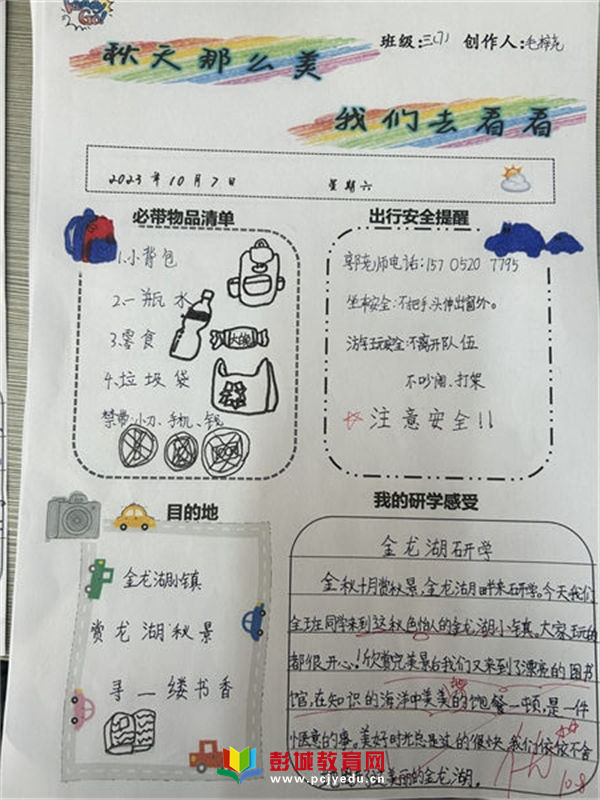 秋天那么美
班级:三(7) 创作人:毛梓尧
我们去看看
2023年10月7日 星期六
必带物品清单
1.小背包
2.一瓶水
3.零食
4.垃圾袋
禁带:小刀、手机、钱
出行安全提醒
郭老师电话:157 0520 7795
坐车安全:不把手、头伸出窗外。
游玩安全:不离开队伍
不吵闹、打架
注意安全!!
目的地
金龙湖小镇
赏龙湖秋景
寻一缕书香
我的研学感受
金龙湖研学
金秋十月赏秋景,金龙湖畔来研学。今天我们
全班同学来到这秋色怡人的金龙湖小镇,大家玩的
都很开心!欣赏完美景后我们又来到了漂亮的图书
馆,在知识的海洋中美美的饱餐一顿,是一件
惬意的事。美好时光总是过的很快,我们依依不舍
美丽的金龙湖。
10.8
彭城教育网
www.pcjyedu.cn